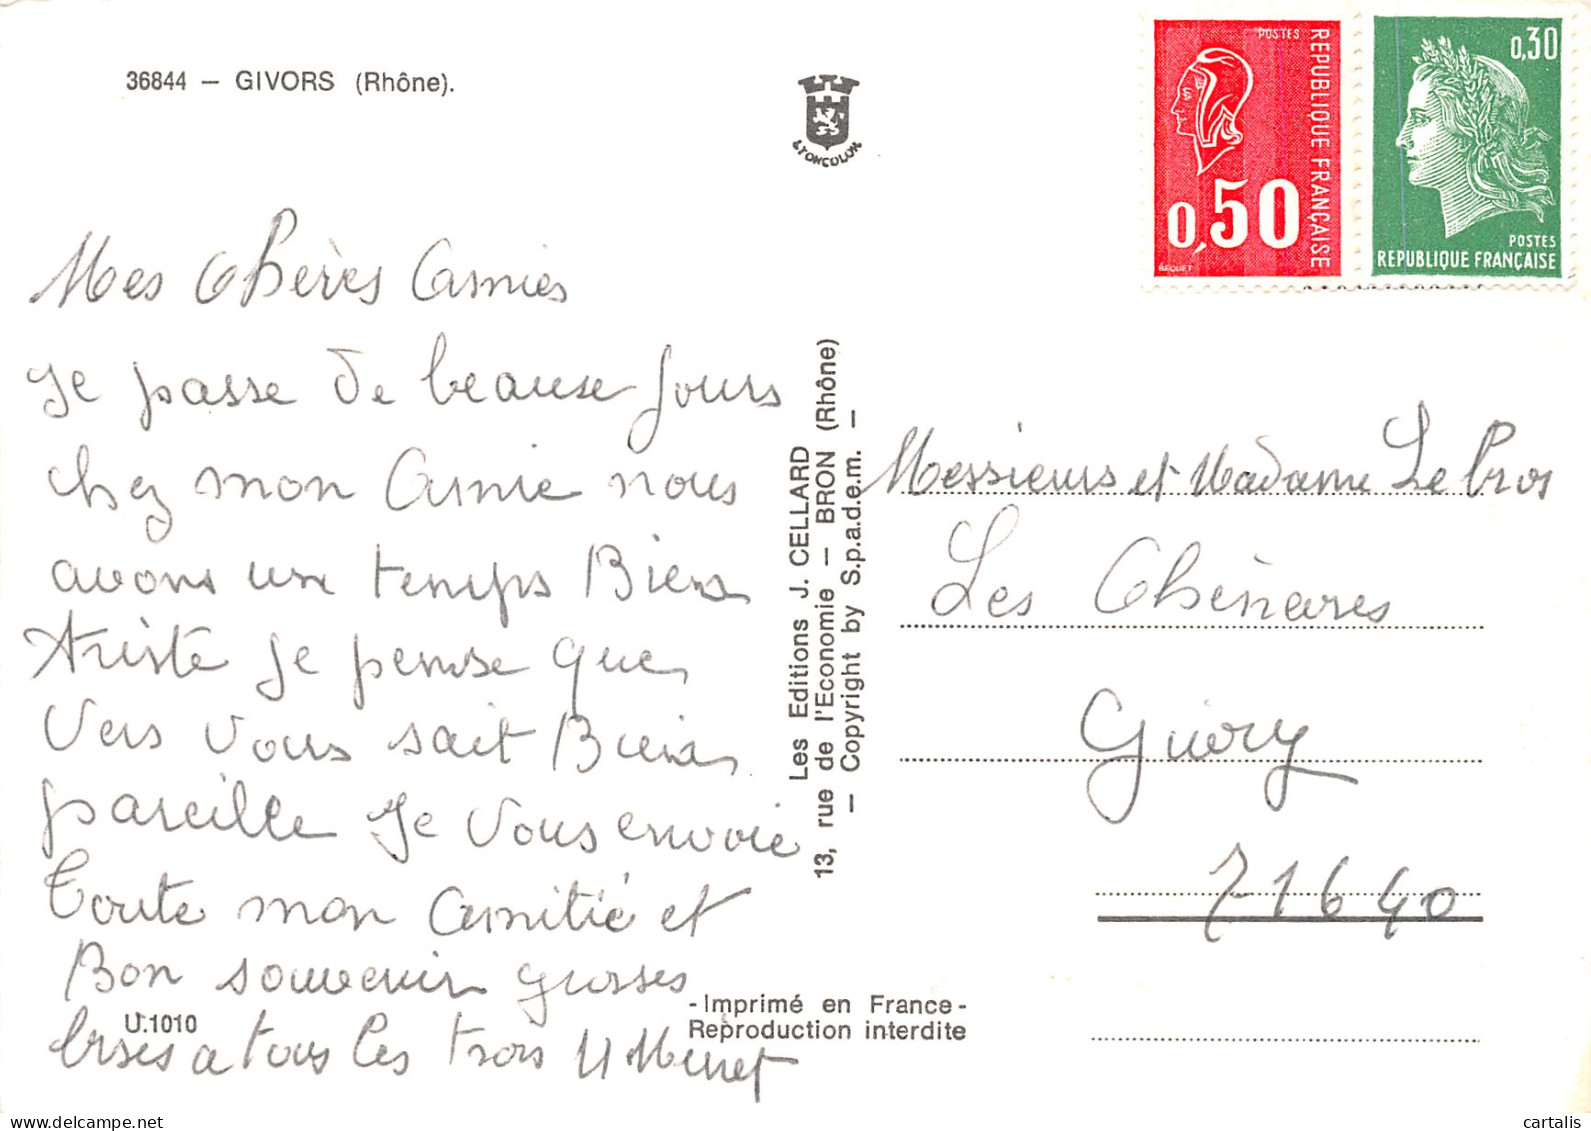 36844 — GIVORS (Rhône).
LYONCOLOR
POSTES
REPUBLIQUE FRANÇAISE
0,50
BEQUET
0,30
POSTES
REPUBLIQUE FRANÇAISE
Mes Chères Amies
Je passe de beause Jours
chez mon Amie nous
avons un temps Bien
triste je pense que
vers vous sait Bien
pareille Je vous envoie
toute mon Amitié et
Bon souvenir grosses
bises a tous les trois
U.1010
Les Editions J. CELLARD
13, rue de l'Economie — BRON (Rhône)
— Copyright by S.p.a.d.e.m. —
-Imprimé en France-
Reproduction interdite
Messieurs et Madame Le Gros
Les Chênares
Givry
71640
www.delcampe.net
cartalis